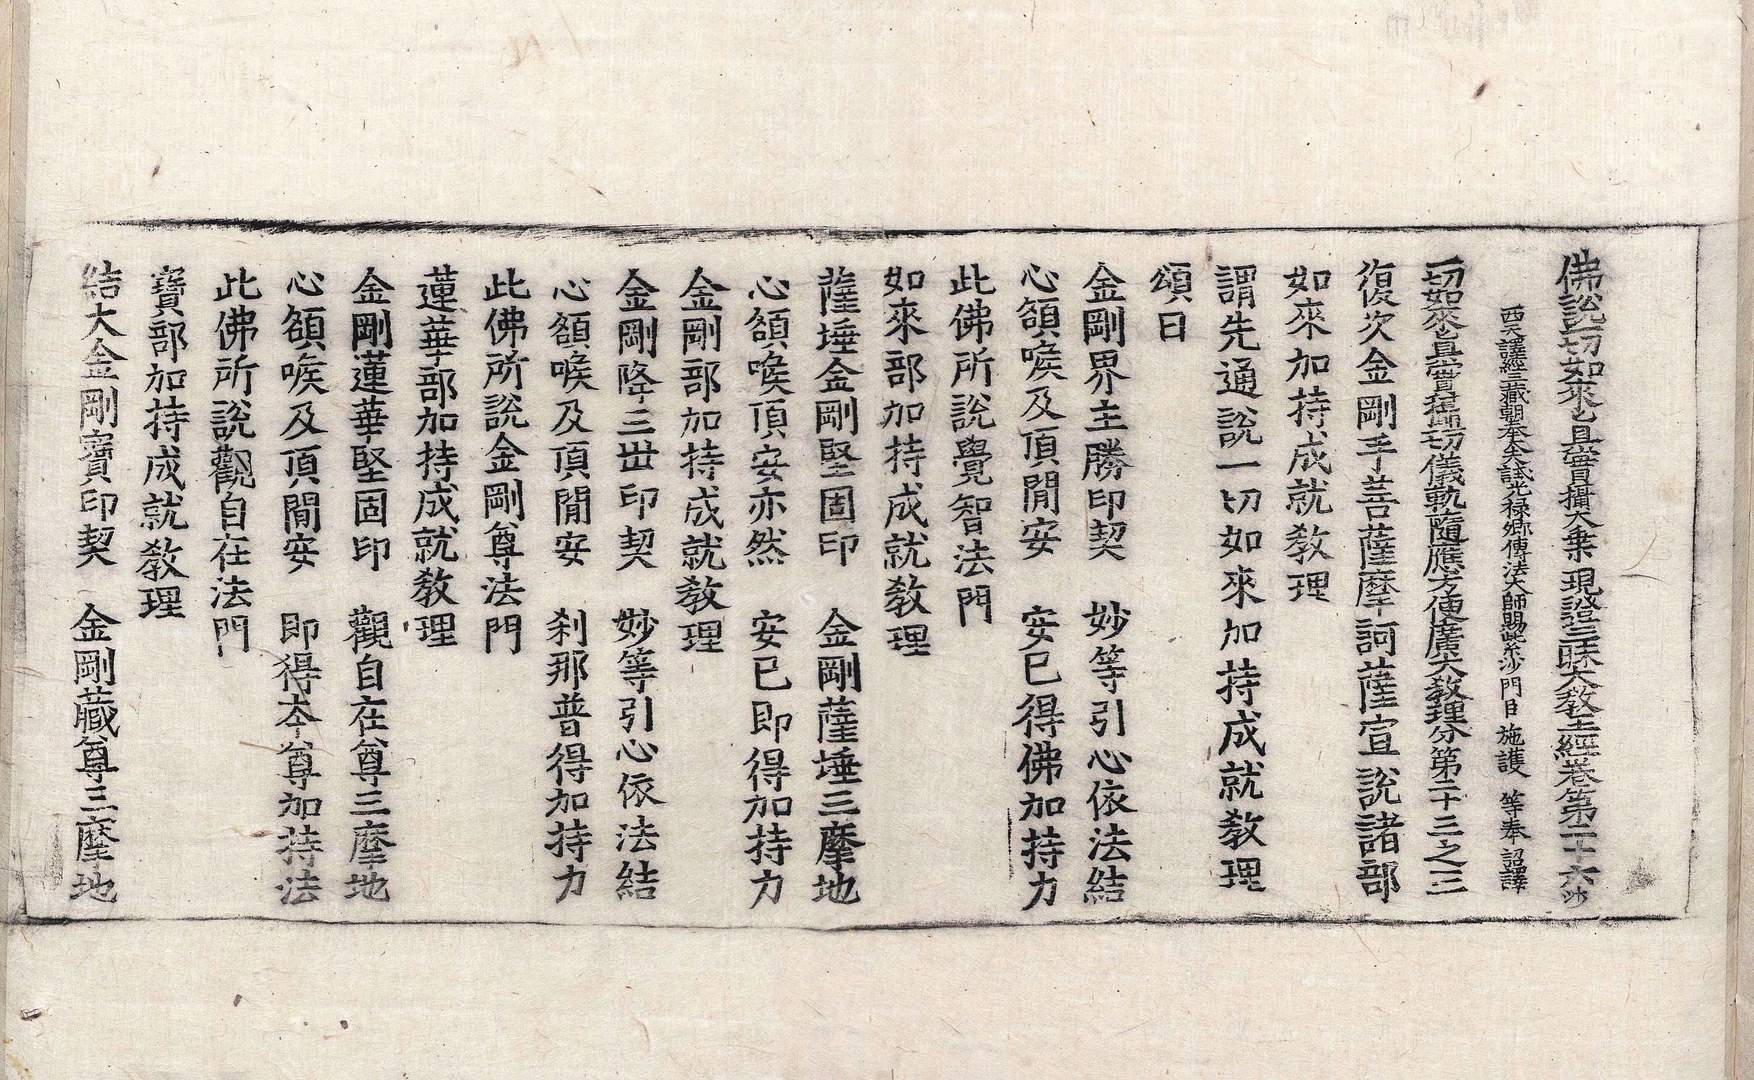 佛說一切如來真實攝大乘現證三昧大教王經卷第二十六 沙
西天譯經三藏朝奉大夫試光祿卿傳法大師賜紫沙門臣施護等奉詔譯
一切如來真實攝一切儀軌隨應方便廣大教理分第二十三之三
復次金剛手菩薩摩訶薩宣說諸部
如來加持成就教理
謂先通說一切如來加持成就教理
頌曰
金剛界主勝印契 妙等引心依法結
心額喉及頂閒安 安已得佛加持力
此佛所說覺智法門
如來部加持成就教理
薩埵金剛堅固印 金剛薩埵三摩地
心額喉頂安亦然 安已即得加持力
金剛部加持成就教理
金剛降三世印契 妙等引心依法結
心額喉及頂閒安 剎那普得加持力
此佛所說金剛尊法門
蓮華部加持成就教理
金剛蓮華堅固印 觀自在尊三摩地
心額喉及頂閒安 即得本尊加持法
此佛所說觀自在法門
寶部加持成就教理
結大金剛寶印契 金剛藏尊三摩地